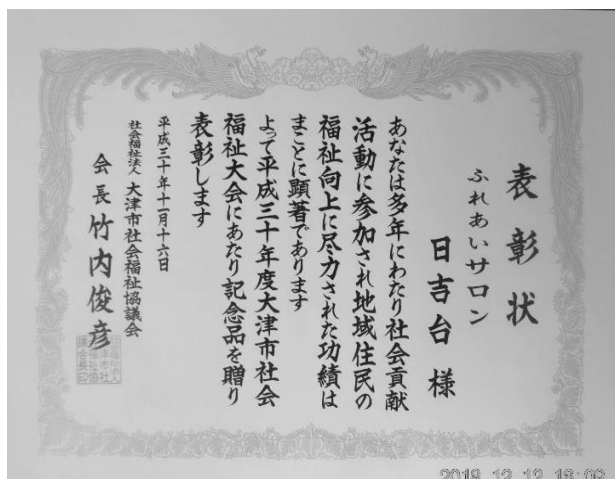 表彰状
ふれあいサロン
日吉台 様
あなたは多年にわたり社会貢献
活動に参加され地域住民の
福祉向上に尽力された功績は
まことに顕著であります
よって平成三十年度大津市社会
福祉大会にあたり記念品を贈り
表彰します
平成三十年十一月十六日
社会福祉法人 大津市社会福祉協議会
会長 竹内俊彦
2018 12 12 18:09